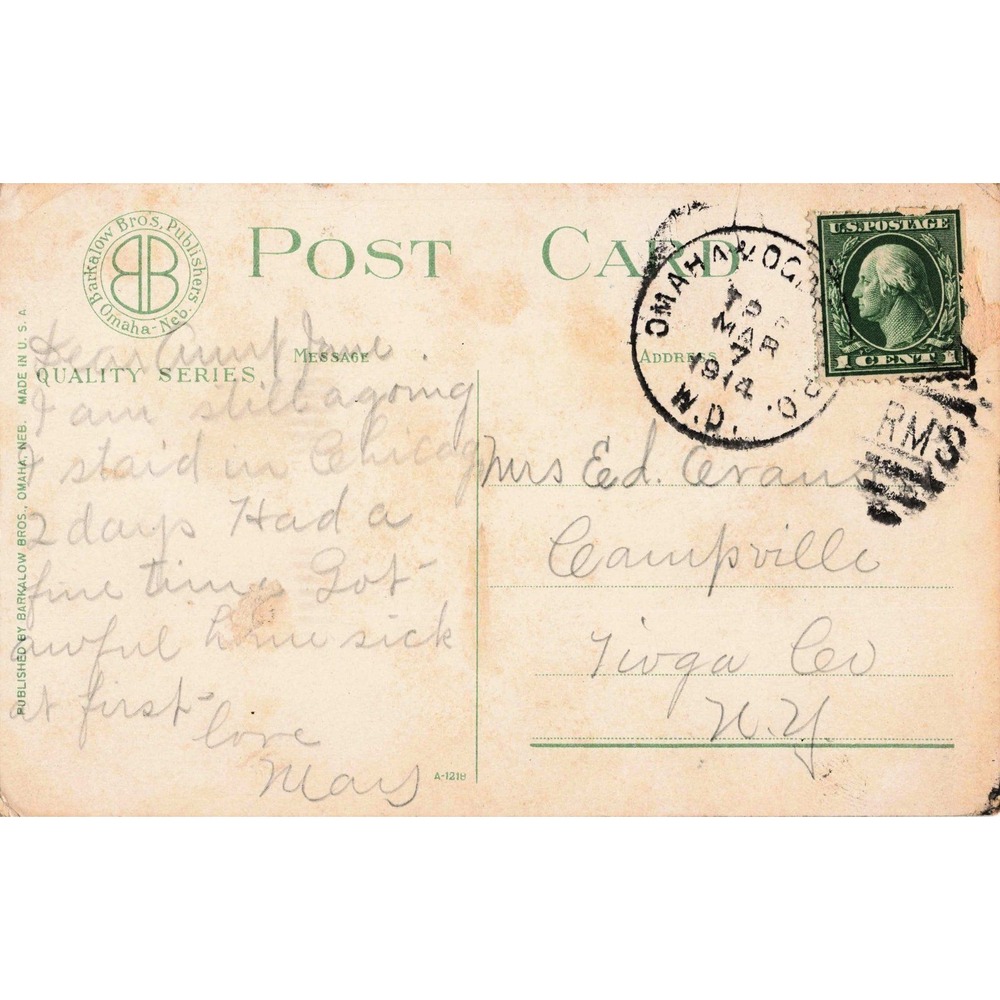 Barkalow Bro's, Publishers
Omaha-Neb.
POST CARD
QUALITY SERIES
MESSAGE
ADDRESS
PUBLISHED BY BARKALOW BROS., OMAHA, NEB. MADE IN U.S.A
A-1218
OMAHA
MAR
7
1914
W.D.
RMS
U.S. POSTAGE
1 CENT 1
Dear Aunt Jane
I am still agoing
I staid in Chicag
2 days Had a
fine time Got
awful home sick
at first
love
Mary
Mrs Ed. Evans
Campville
Tioga Co
N.Y.